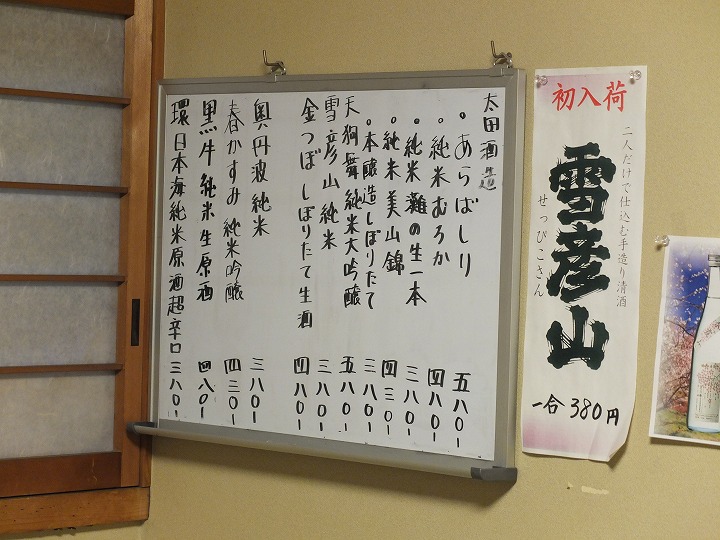 太田酒造
・あらばしり 五八〇-
・純米むろか 四八〇-
・純米灘の生一本 三八〇-
・純米美山錦 四三〇-
・本醸造しぼりたて 三八〇-
天狗舞 純米大吟醸 五八〇-
雪彦山 純米 三八〇-
金つぼしぼりたて生酒 四八〇-
奥丹波 純米 三八〇-
春かすみ 純米吟醸 四三〇-
黒牛 純米生原酒 四八〇-
環日本海純米原酒超辛口 三八〇-
初入荷
二人だけで仕込む手造り清酒
雪彦山
せっぴこさん
一合380円